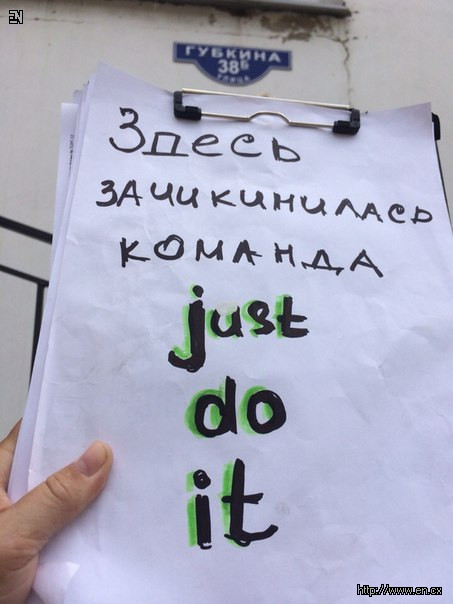 EN
ГУБКИНА
38Б
УЛИЦА
Здесь
ЗАЧИКИНИЛАСЬ
КОМАНДА
just
do
it
http://www.en.cx